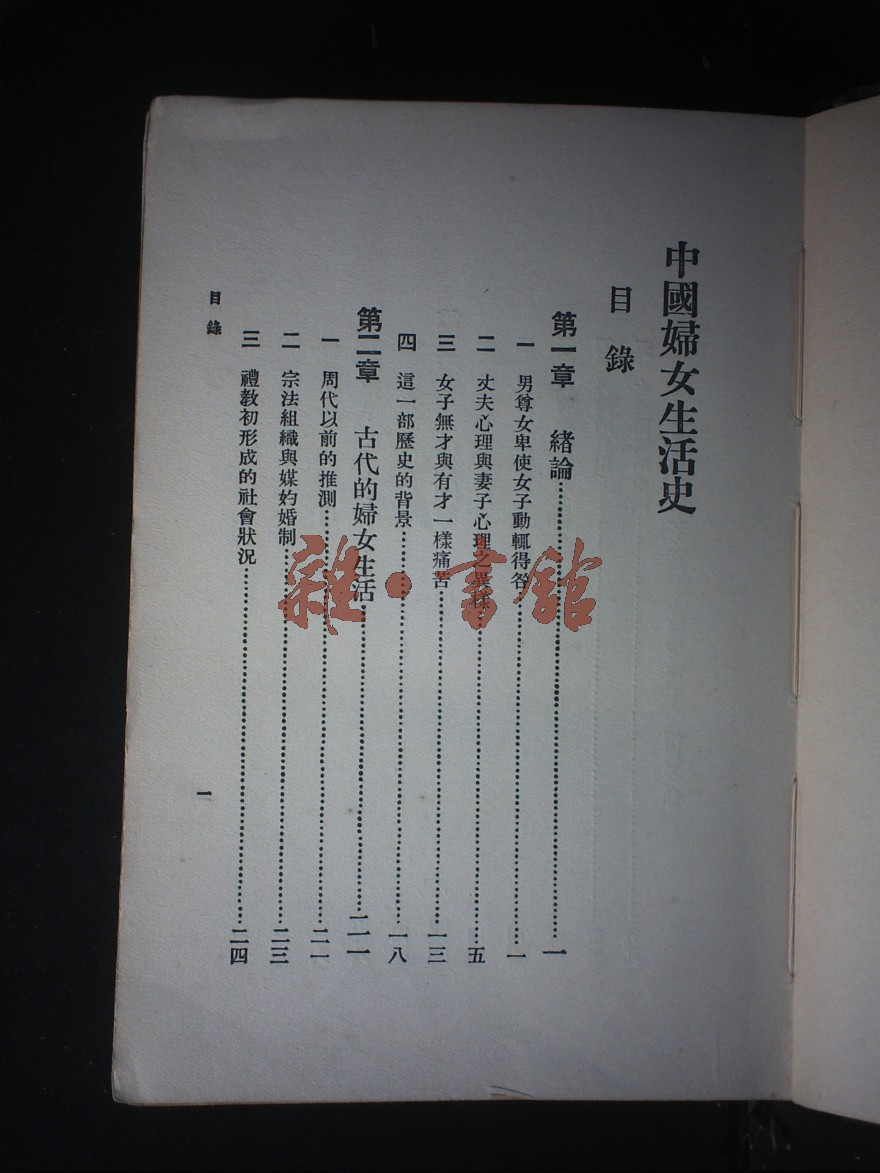 中國婦女生活史
目錄
第一章　緒論……一
一　男尊女卑使女子動輒得咎……一
二　丈夫心理與妻子心理之異樣……五
三　女子無才與有才一樣痛苦……一三
四　這一部歷史的背景……一八
第二章　古代的婦女生活……二一
一　周代以前的推測……二一
二　宗法組織與媒妁婚制……二三
三　禮教初形成的社會狀況……二四
目錄
一
雜·書館